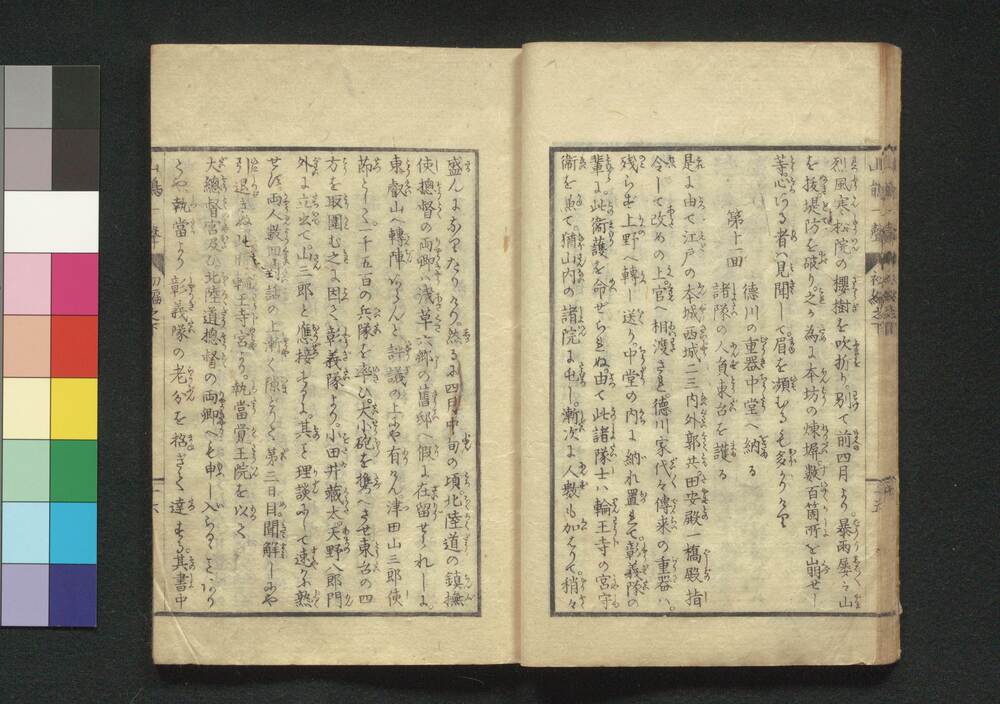 烈風寒松院の櫻樹を吹折り。別て前四月より。暴雨屡々山
を抜堤防を破り。之が為に本坊の煉塀數百箇所を崩せし
等心ある者ハ見聞して。眉を顰むるも多かりけり
第十一回
徳川の重器中堂へ納る
諸隊の人員東台を護る
是に由て。江戸の本城西城二三内外郭共田安殿一橋殿指
令して改めの上。官へ相渡され。徳川家代々傳来の重器ハ。
残らず上野へ轉し送り。中堂の内に納れ置れて。彰義隊の
輩に。此衛護を命ぜらる。由て此諸隊士ハ輪王寺の宮守
衛を兼て。猶山内の諸院に屯し。漸次に人數も加はりて。稍々
盛んになりたりけり。然るに四月中旬の頃。北陸道の鎮撫
使總督の両卿ハ浅草六郷の舊邸へ假に在留せられしに。
東叡山へ轉陣あらんと評議の上にや有けん津田山三郎使
節として。一千五百の兵隊を率ひ。大小砲を携へさせ東台の四
方を取圍む之に因て彰義隊より。小田井藏太。天野八郎門
外に立出て。山三郎と應接するに。其を理談にして速に熟
せず。両人數回對話の上漸く陳じて。第三日目聞解しにや
引退きぬ
王寺宮より。執當覚王院を以て
大總督宮及ひ北陸道總督の両卿へも申し入らるゝことゝあり
とや。執當より 彰義隊の老分を招きて達する其書中